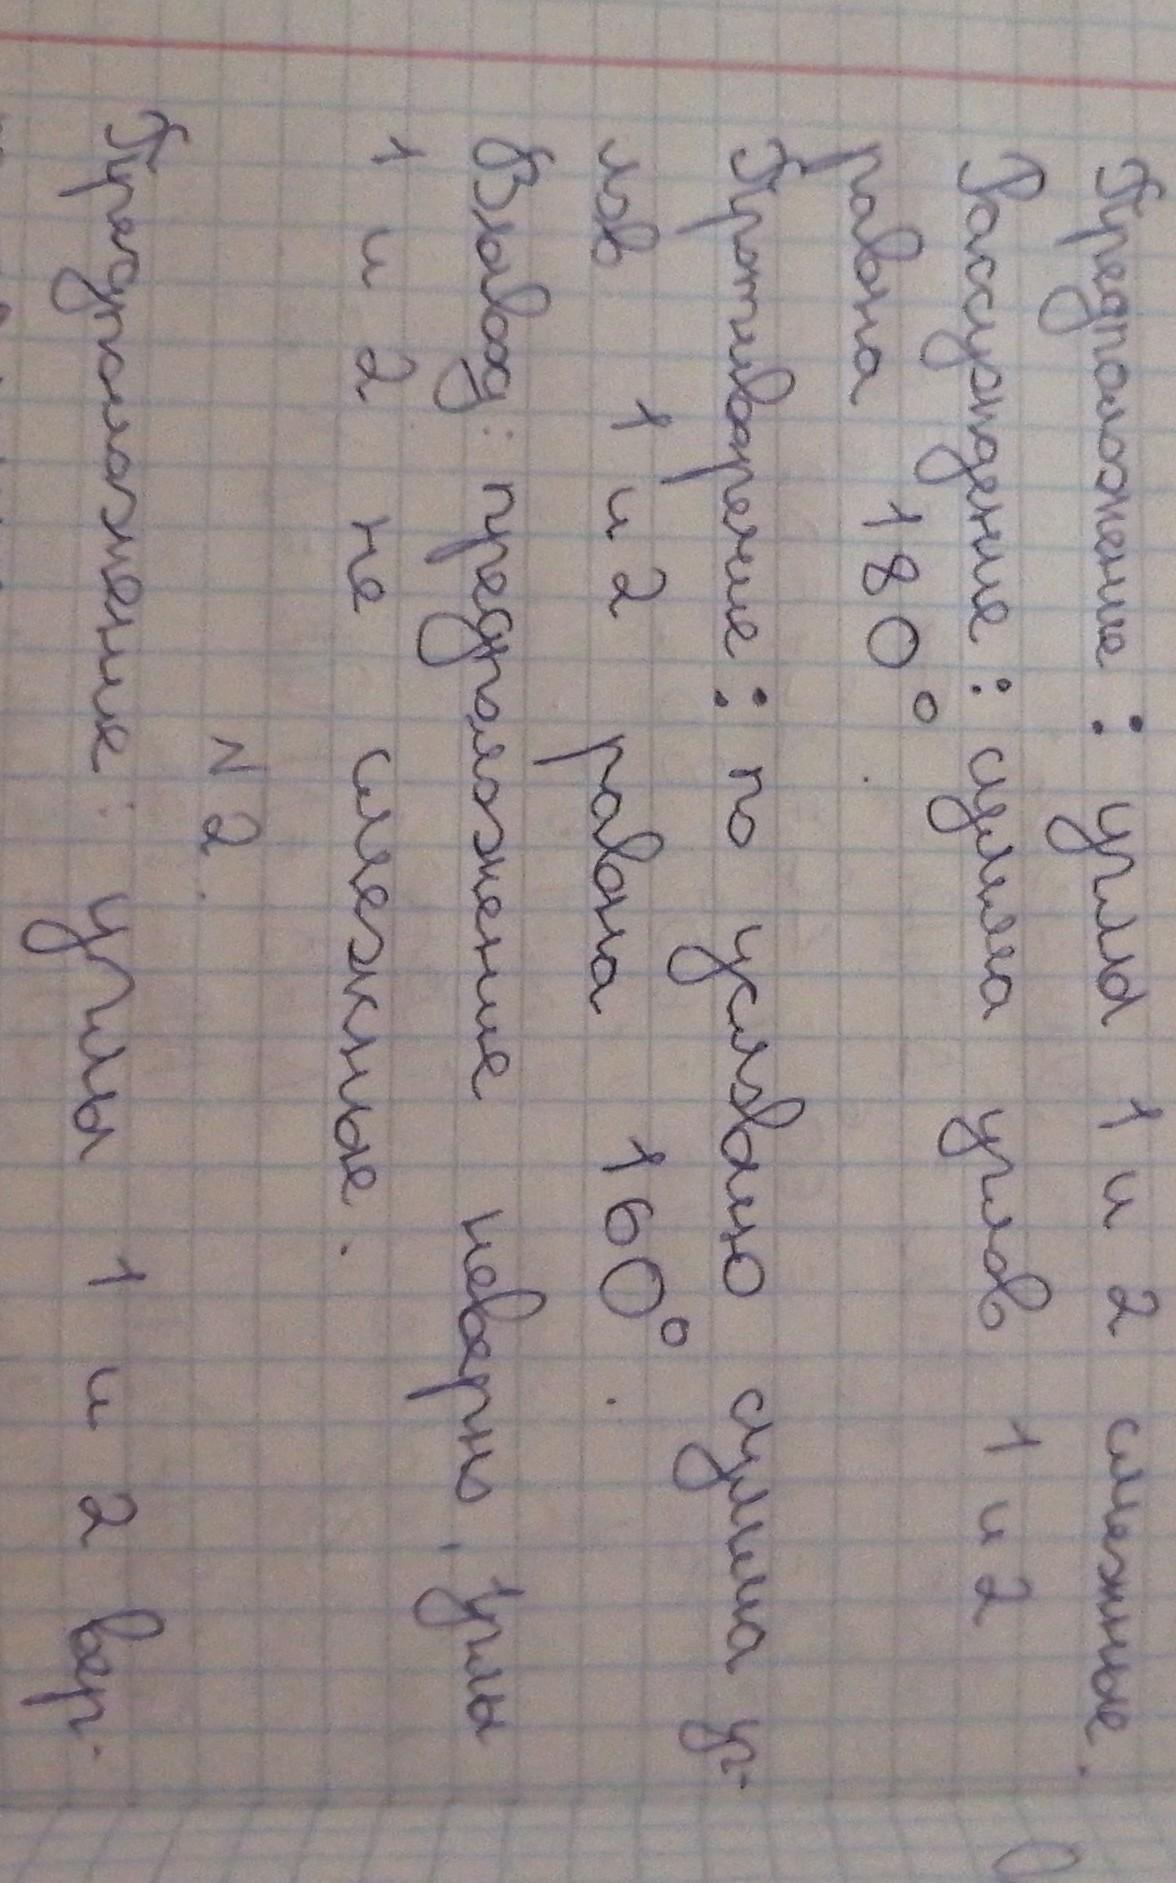 Предположение: углы 1 и 2 смежные.
Рассуждение: сумма углов 1 и 2
равна 180°.
Противоречие: по условию сумма уг-
лов 1 и 2 равна 160°.
Вывод: предположение неверно, углы
1 и 2 не смежные.
N 2.
Предположение: углы 1 и 2 вер-